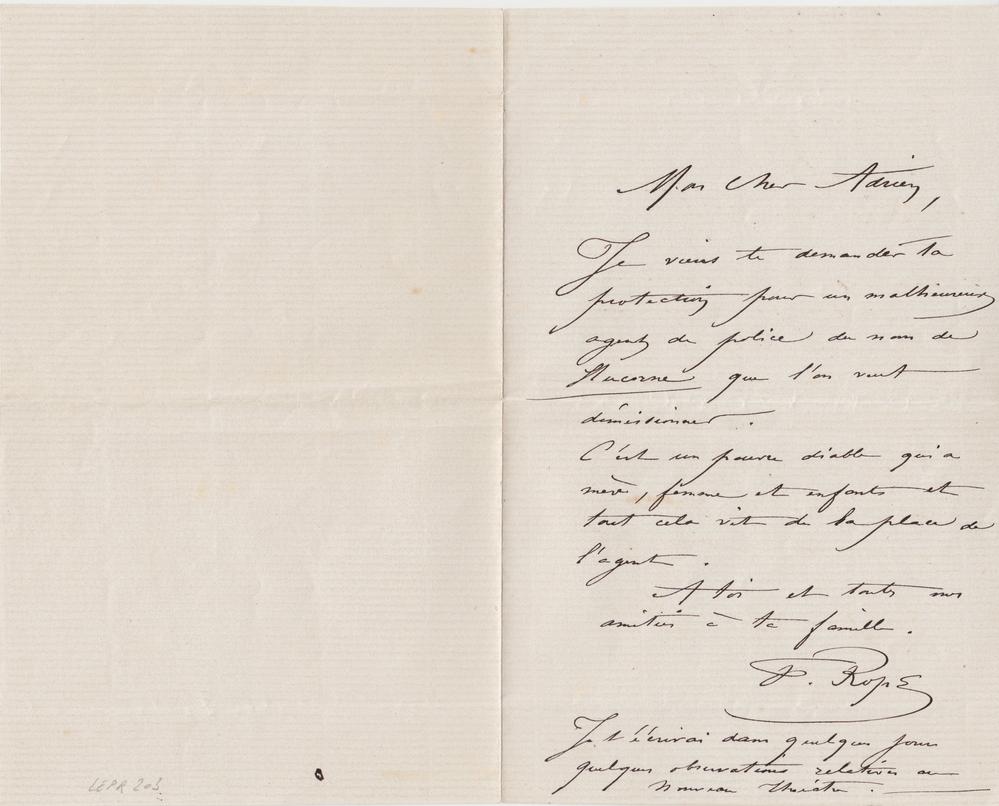 Mon cher Adrien,
Je viens te demander ta
protection pour un malheureux
agent de police du nom de
que l'on veut
démissionner.
C'est un pauvre diable qui a
mère, femme et enfants et
tout cela vit de la place de
l'agent.
A toi et toutes nos
amitiés à ta famille.
F. Rops
Je t'écrirai dans quelques jours
quelques observations relatives au
Nouveau théâtre.
LEPR 203